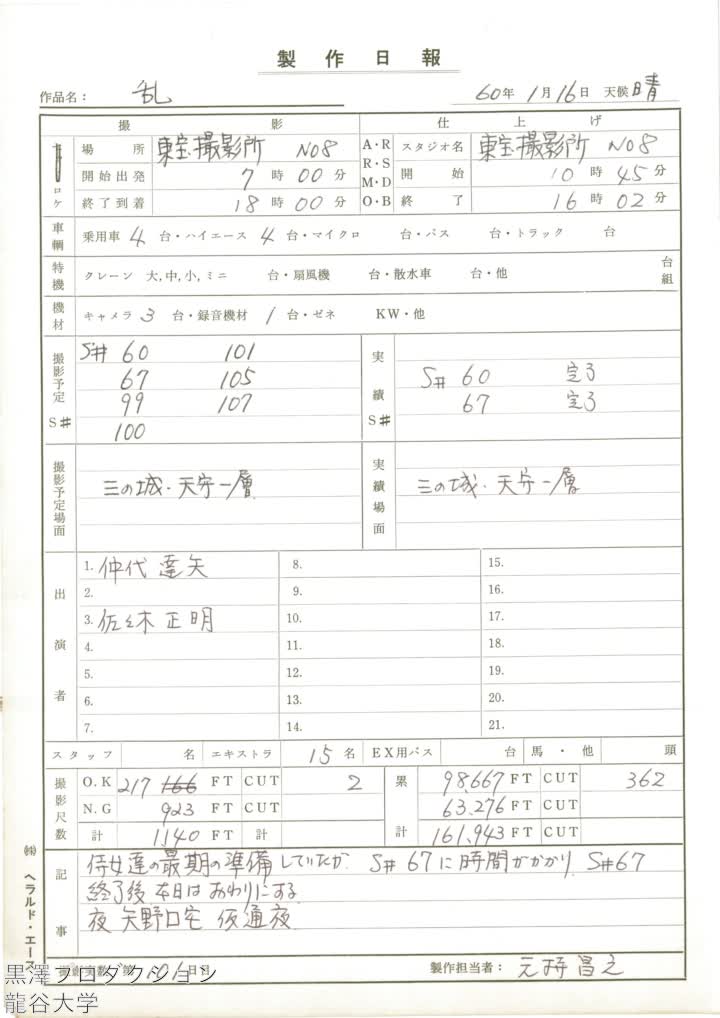 製作日報
作品名： 乱 60年 1月16日 天候 晴
撮影 仕上げ
ロケ 場所 東宝撮影所 No8 A・R R・S M・D O・B スタジオ名 東宝撮影所 No8
開始出発 7時00分 開始 10時45分
終了到着 18時00分 終了 16時02分
車輌 乗用車 4 台・ハイエース 4 台・マイクロ 台・バス 台・トラック 台
特機 クレーン 大,中,小,ミニ 台・扇風機 台・散水車 台・他 台 組
機材 キャメラ 3 台・録音機材 1 台・ゼネ KW・他
撮影予定 S# S# 60 101 実績 S#
67 105 S# 60 完了
99 107 67 完了
100
撮影予定場面 三の城・天守一層 実績場面 三の城・天守一層
出演者
1. 仲代達矢 8. 15.
2. 9. 16.
3. 佐々木正明 10. 17.
4. 11. 18.
5. 12. 19.
6. 13. 20.
7. 14. 21.
スタッフ 名 エキストラ 15名 EX用バス 台 馬・他 頭
撮影尺数 O.K 217 166 FT CUT 2 累計 98,667 FT CUT 362
N.G 923 FT 63,276 FT CUT
計 1,140 FT 計 161,943 FT CUT
記事 侍女達の最期の準備していたが S# 67に時間がかかり S#67
終了後 本日はおわりにする
夜 矢野口宅 仮通夜
撮影実数 第101日目 製作担当者：
㈱ヘラルド・エース
黒澤プロダクション
龍谷大学